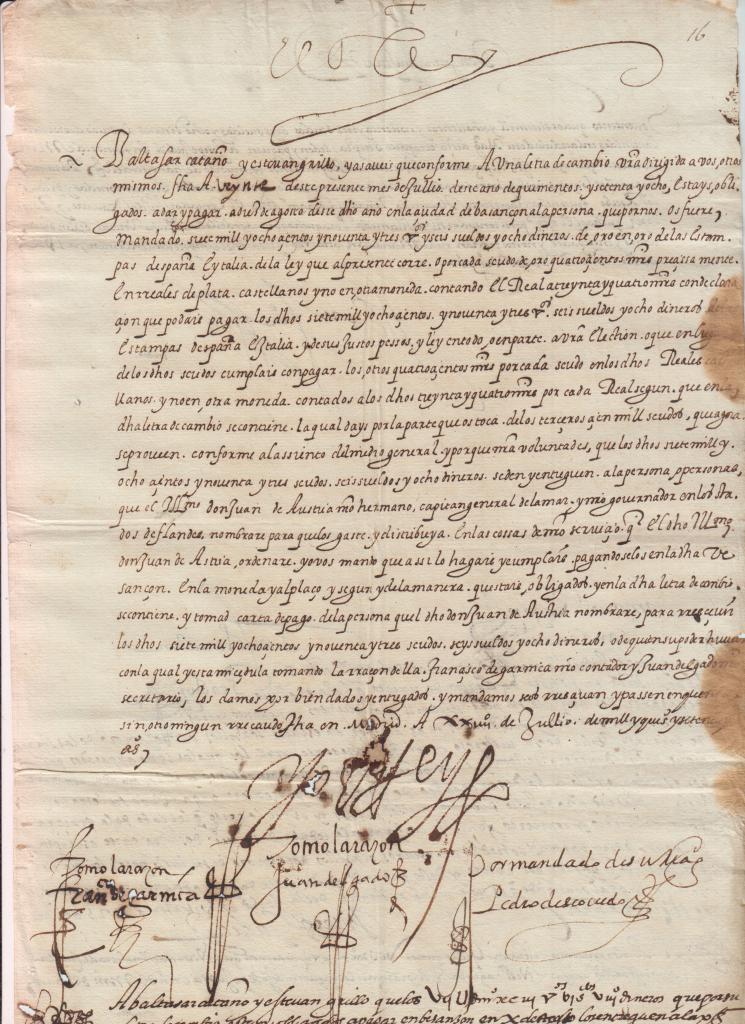 El Rey
16
Baltasar cataño y estevan grillo, ya saveis que conforme A Una letra de cambio vra dirigida a vos, otros
mismos. fha A. veynte deste presente mes de Jullio. deste ano de quinientos. y setenta y ocho, Estays, obli
gados. a dar y pagar. a de agosto deste dho año en la ciudad de basançon a la persona. que por nos. os fuere,
Mandado, siete mill y ochocientos y noventa y tres y seis sueldos y ocho dineros. de, oro en, oro de las Estam
pas de españa E ytalia. de la ley que al presente corre. o por cada scudo de, oro quatrocientos mrs preçissamente.
En rreales de plata. castellanos y no en, otra moneda. contando El Real a treynta y quatro mrs con declara
çion que podais pagar. los dhos siete mill y ochocientos. y noventa y tres seis sueldos y ocho dineros
Estampas de españa E Ytalia. y de sus Justos pessos, y ley en todo, o en parte. a vra Election. o que en lug
de los dhos scudos cumplais con pagar. los, otros quatrocientos mrs por cada scudo en los dhos Reales
llanos. y no en, otra moneda. contados a los dhos treynta y quatro mrs por cada Real segun. que en la
dha letra de cambio se contiene. la qual days por la parte que os toca. de los terceros cien mill scudos, que agora
se proveen. conforme al assiento del medio general. y porque mi voluntad es, que los dhos siete mill y.
ocho cientos y noventa y tres scudos. seis sueldos y ocho dineros. se den y entreguen. a la persona, o personas,
que el Illmo don Juan de Austria mi hermano, capitan general de la mar. y mi governador en los Sta
dos de flandes, nombrare para que los gaste. y distribuya. En las cossas de mi serviçio. q El dho Illmo
don Juan de Astria, ordenare. yo vos mando que assi lo hagais y cumplais. pagandoselos en la dha Ve
sançon. En la moneda y al plaço, y segun y de la manera. que stais, obligados. y en la dha letra de cambio
se contiene. y tomad carta de pago. de la persona quel dho don Juan de Austria nombrare, para rresçeuir
los dhos siete mill y ochocientos y noventa y tres scudos. seys sueldos y ocho dineros, o de quien su poder huui
con la qual y esta mi cedula tomando la rraçon della. françisco de garnica mi contador y Juan delgado mi
secretario, los damos por bien dados y entregados. y mandamos se os rresçiuan y passen en quen
sin, otro ningun rrecaudo, fha en. Madrid. A xxiiii. de Jullio. de mill y quis y seten
a8,
Yo el Rey
Tomo la razon
Juan delgado
Tomo la razon
Franco de Garnica
Por mandado de su Magd
Pedro descouedo
A baltasar cataño y estevan grillo que los dineros que por su